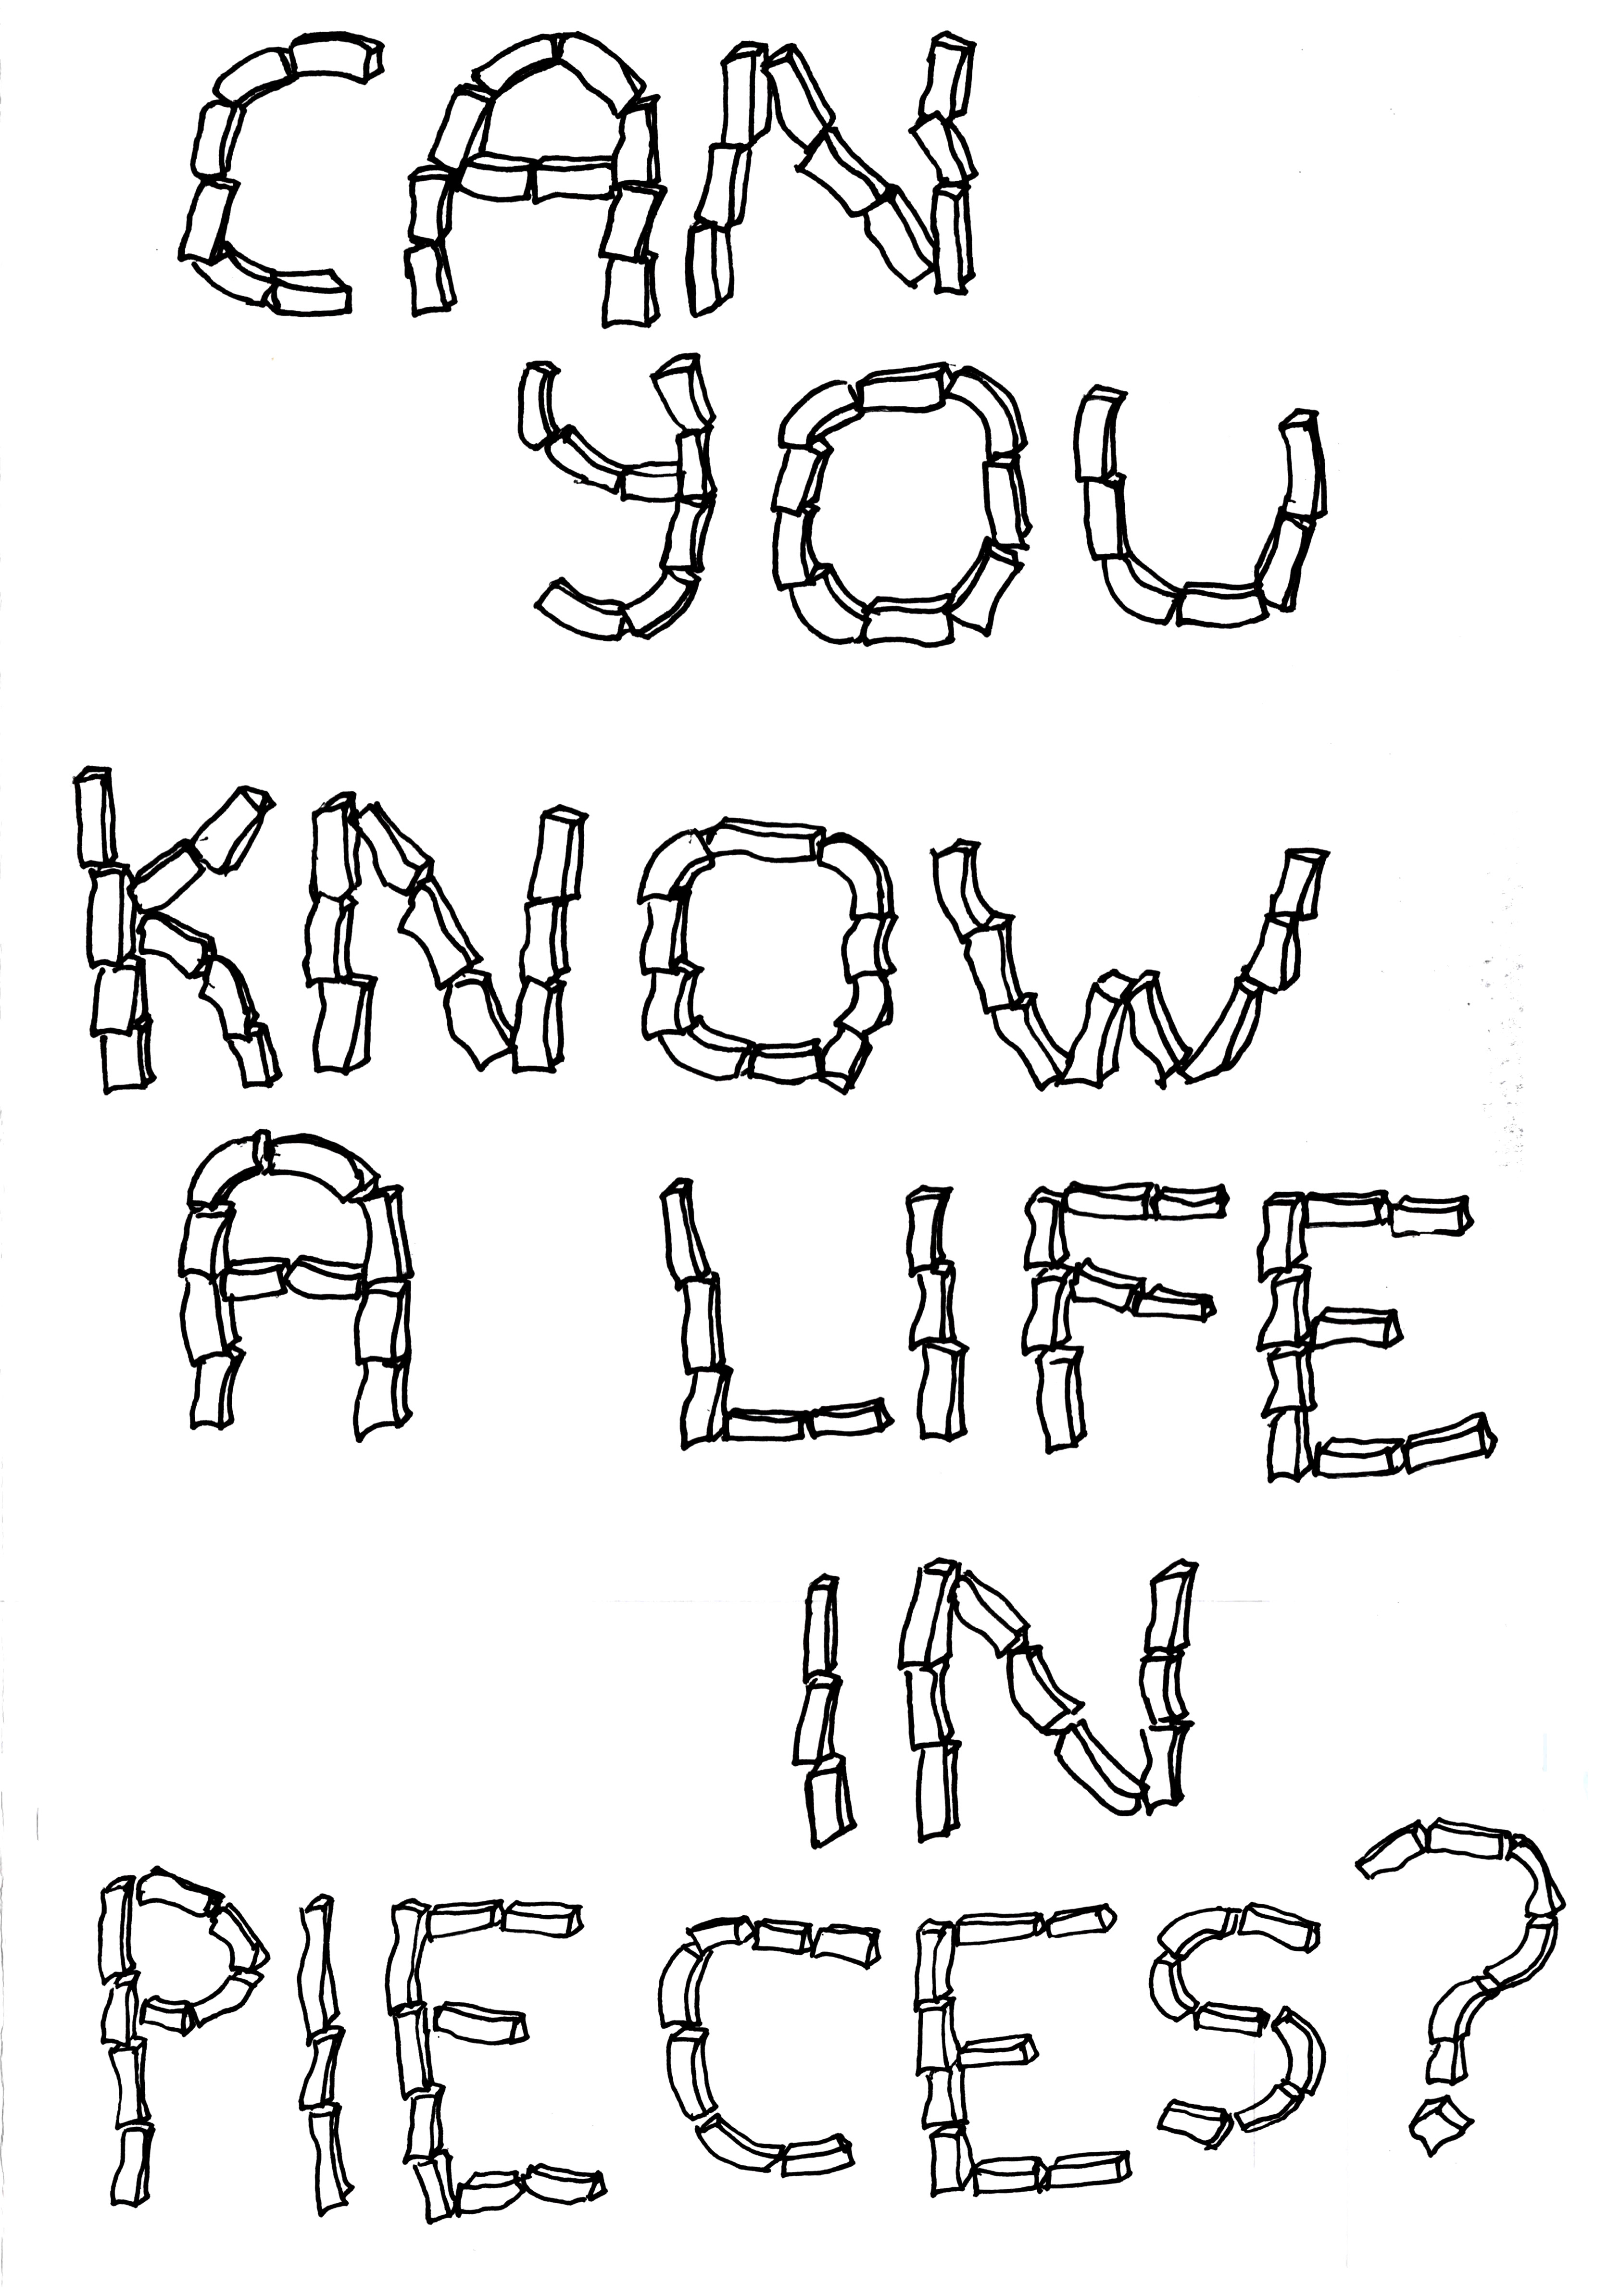 CAN
YOU
KNOW
A LIFE
IN
PIECES?